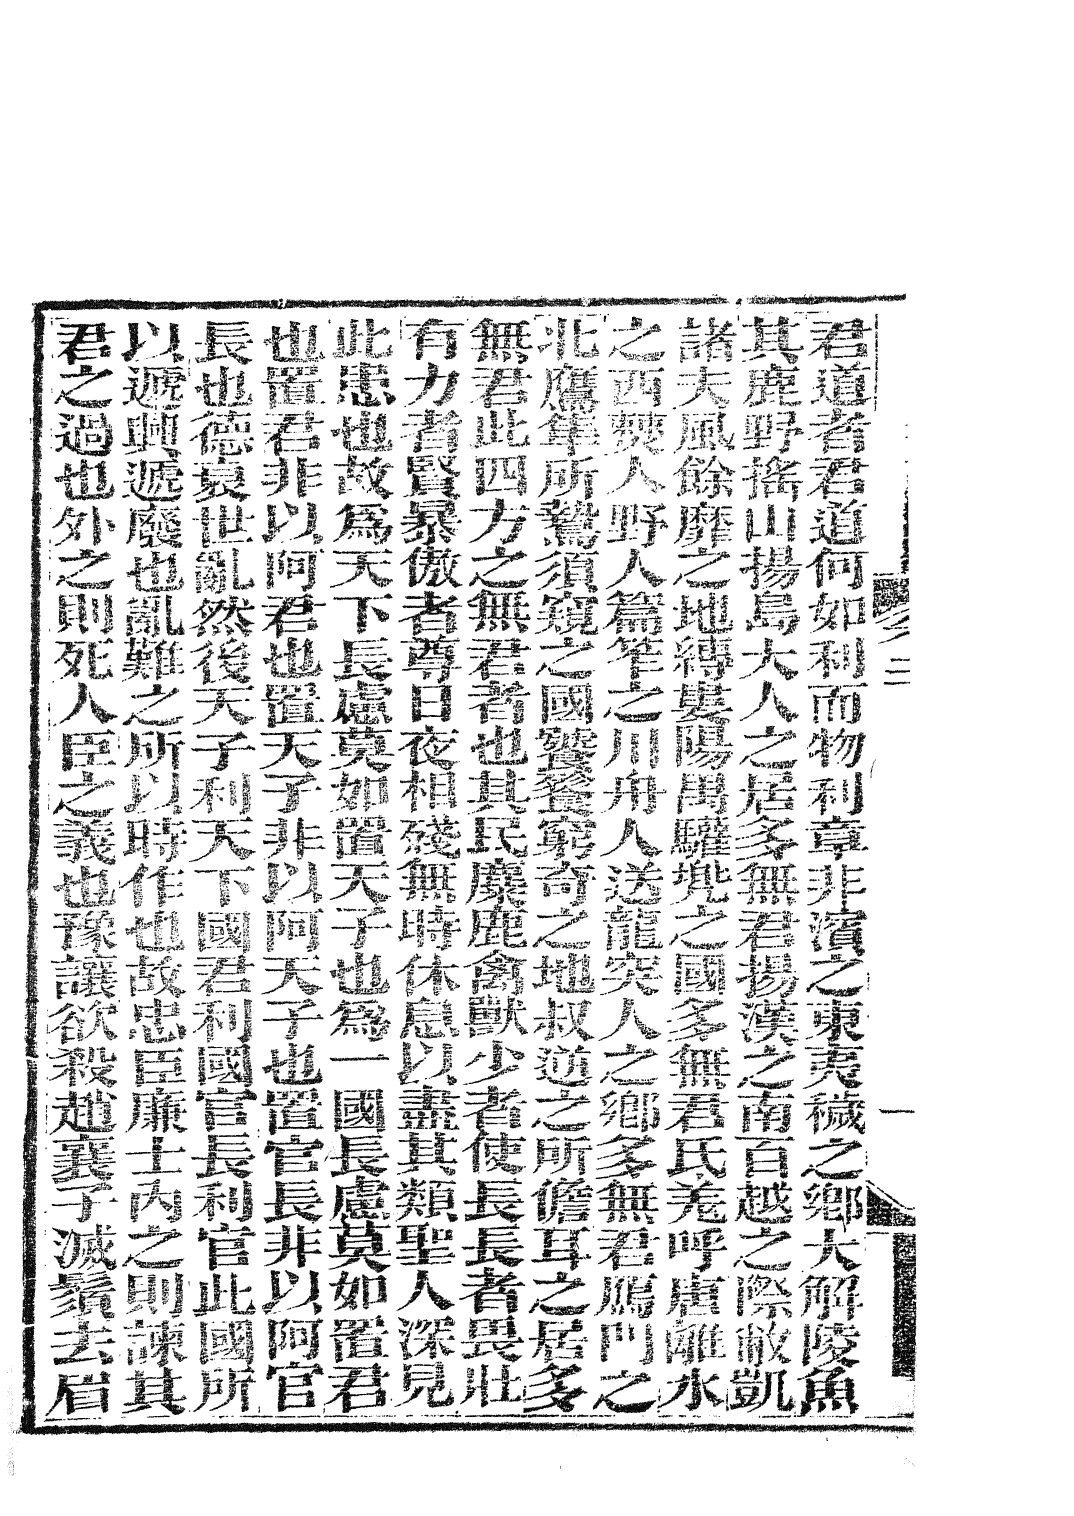 二
一
君道者君道何如利而物利章非濱之東夷穢之鄉大解陵魚
其鹿野搖山揚島大人之居多無君揚漢之南百越之際敝凱
諸夫風餘靡之地縛婁陽禺驩兠之國多無君氐羗呼唐離水
之西僰人野人篇笮之川舟人送龍突人之鄉多無君鴈門之
北鷹隼所鷙須窺之國饕餮窮奇之地叔逆之所儋耳之居多
無君此四方之無君者也其民麋鹿禽獸少者使長長者畏壯
有力者賢暴傲者尊日夜相殘無時休息以盡其類聖人深見
此患也故爲天下長慮莫如置天子也爲一國長慮莫如置君
也置君非以阿君也置天子非以阿天子也置官長非以阿官
長也德衰世亂然後天子利天下國君利國官長利官此國所
以遞興遞廢也亂難之所以時作也故忠臣廉士內之則諫其
君之過也外之則死人臣之義也豫讓欲殺趙襄子滅鬚去眉